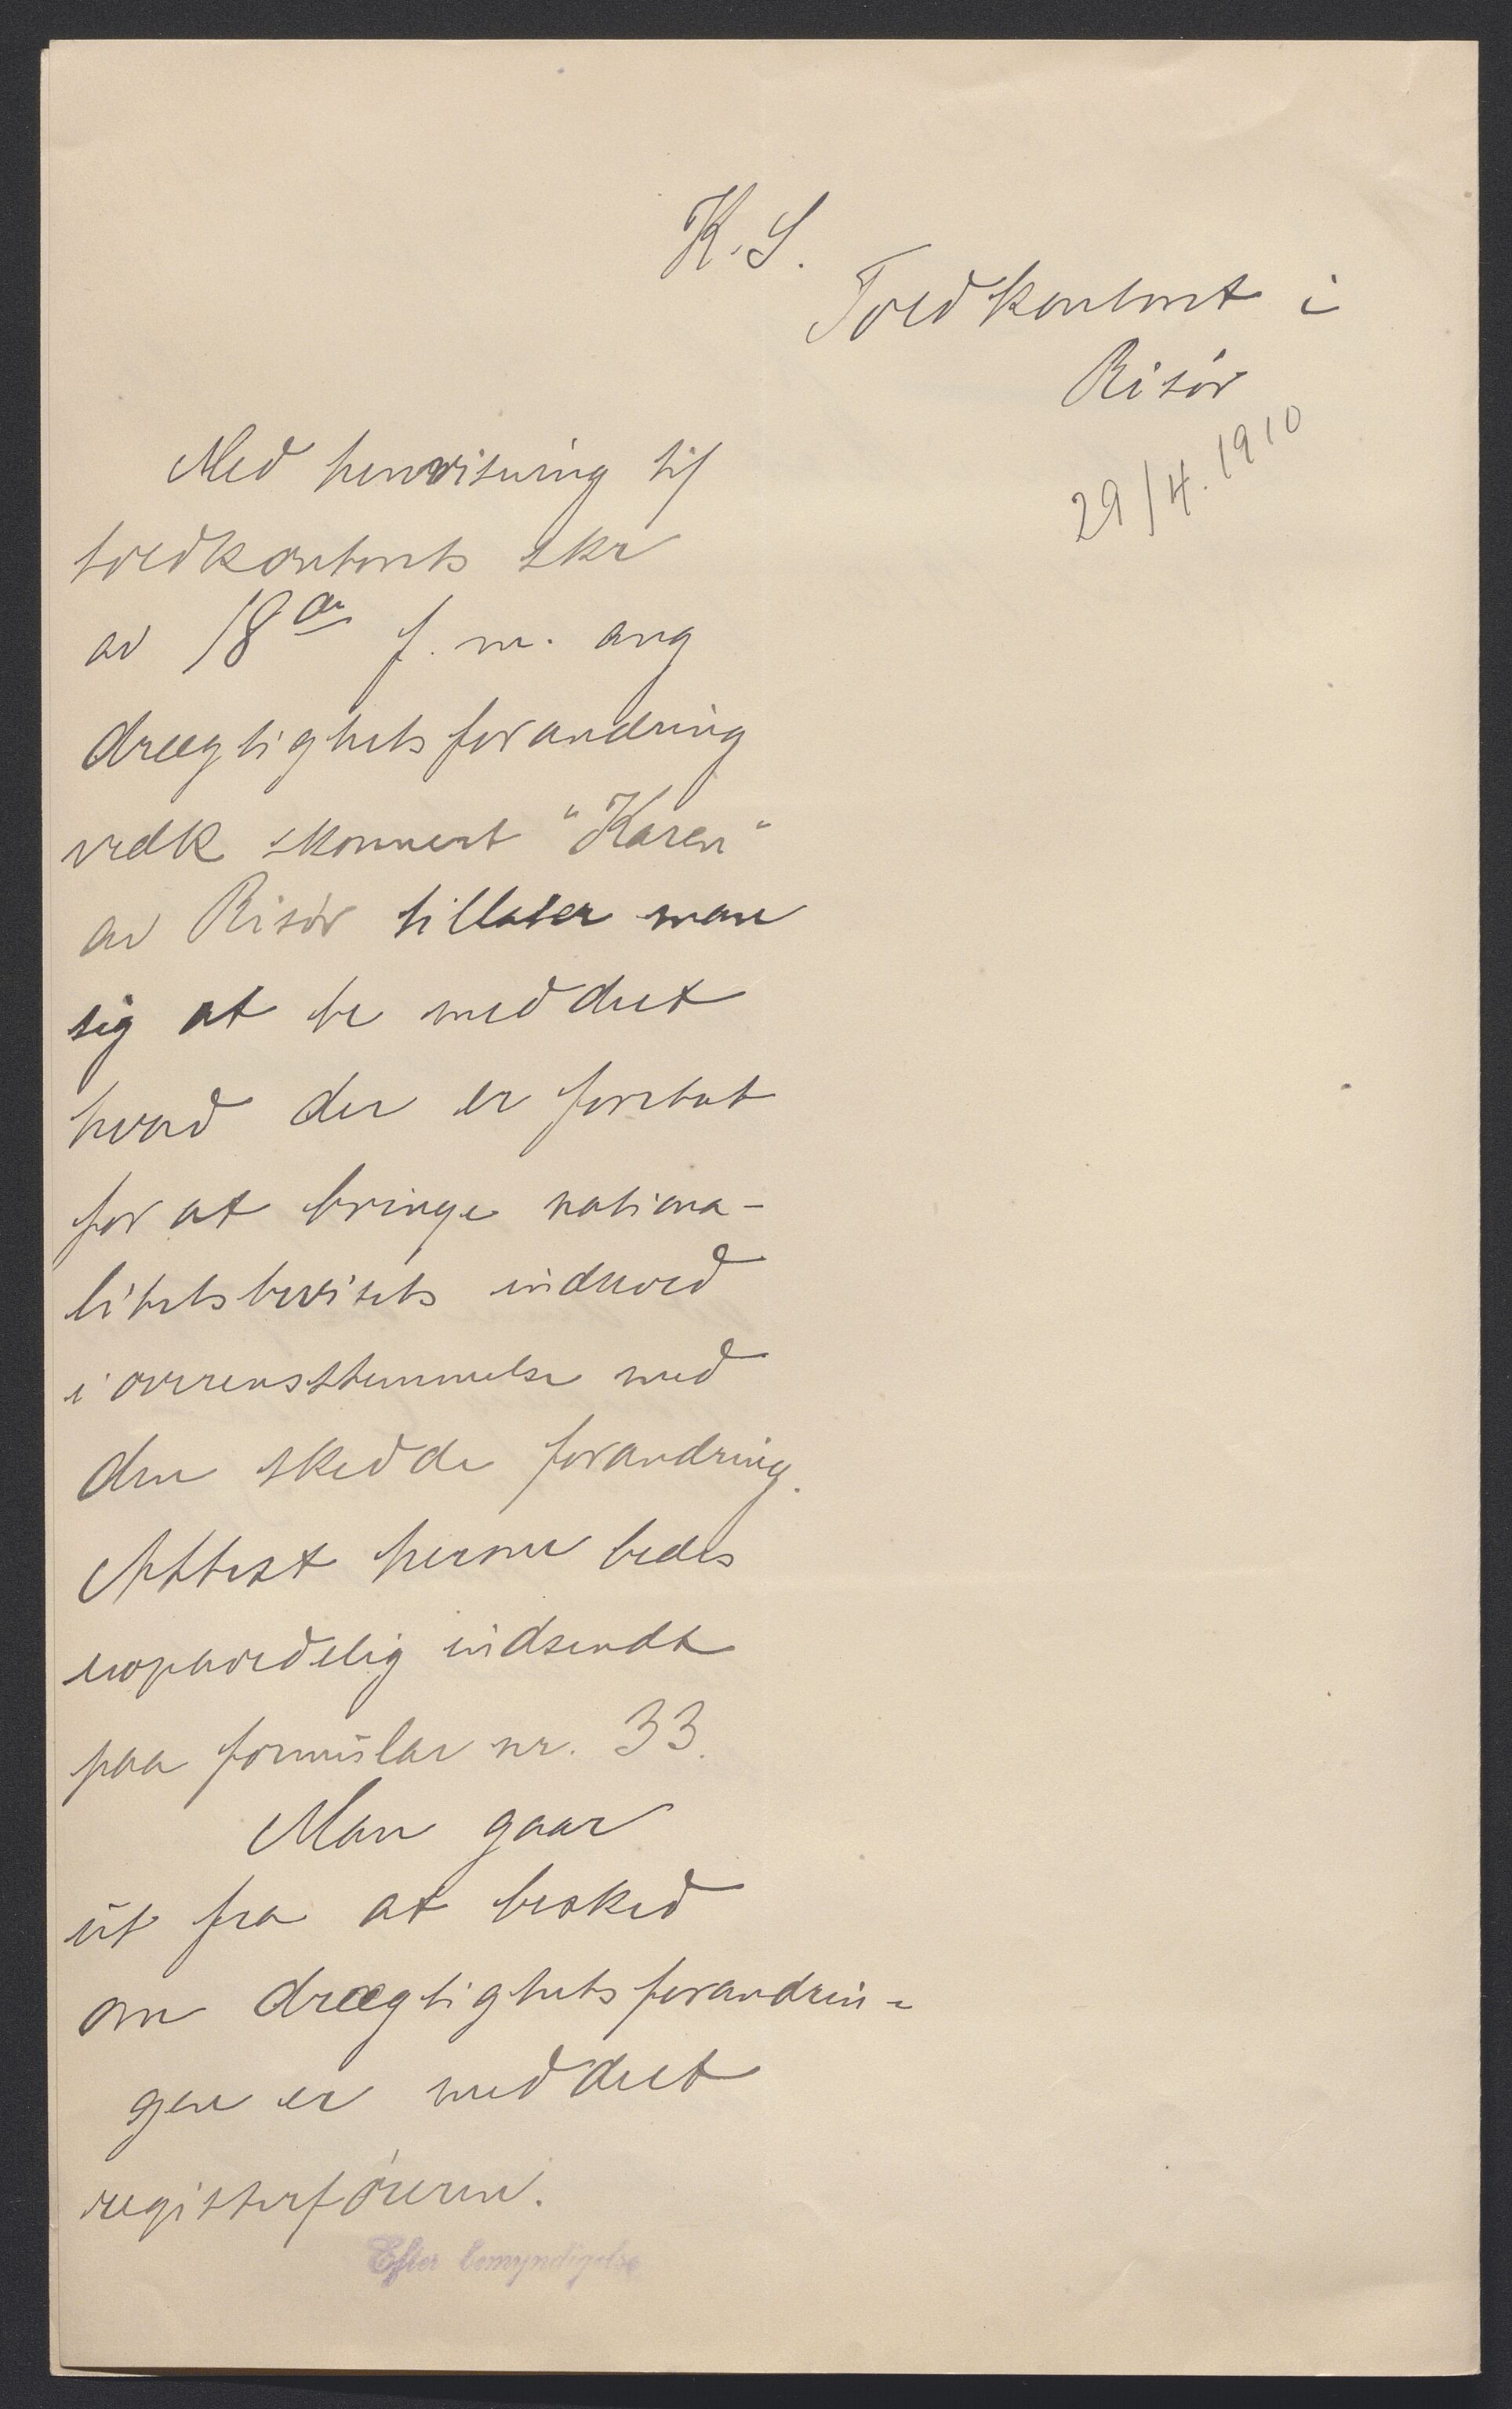 K. S.
Toldkontoret i
Risör
29/4. 1910
Med henvisning til
toldkontorets skr
av 18de f. m. ang
drægtighetsforandring
vedk skonnert "Karen"
av Risör tillater man
sig at be meddelt
hvad der er foretat
for at bringe nationa-
litetsbevisets indhold
i overensstemmelse med
den skedde forandring.
Attest herom bedes
uopholdelig indsendt
paa formular nr. 33.
Man gaar
ut fra at besked
om drægtighetsforandrin-
gen er meddelt
registerföreren.
Efter bemyndigelse